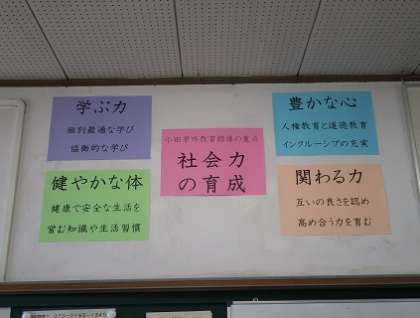 学ぶ力
個別最適な学び
協働的な学び
健やかな体
健康で安全な生活を
営む知識や生活習慣
社会力
の育成
豊かな心
人権教育と道徳教育
インクルーシブの充実
関わる力
互いの良さを認め
高め合う力を育む